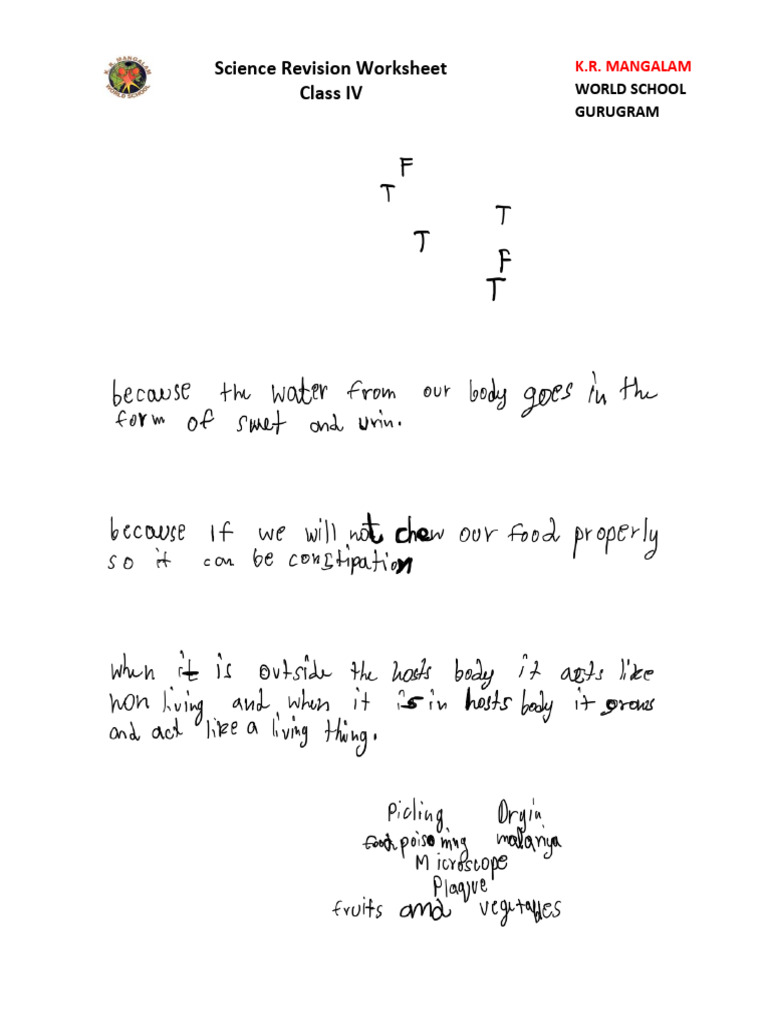 K.R. MANGALAM
WORLD SCHOOL
Science Revision Worksheet
Class IV
K.R. MANGALAM
WORLD SCHOOL
GURUGRAM
F
T
T
T
F
T
because the water from our body goes in the
form of swet and urin.
because if we will not chew our food properly
so it can be constipation
when it is outside the hosts body it acts like
non living and when it is in hosts body it grows
and act like a living thing.
Picling Dryin
food poisoning malariya
Microscope
Plaque
fruits and vegetables